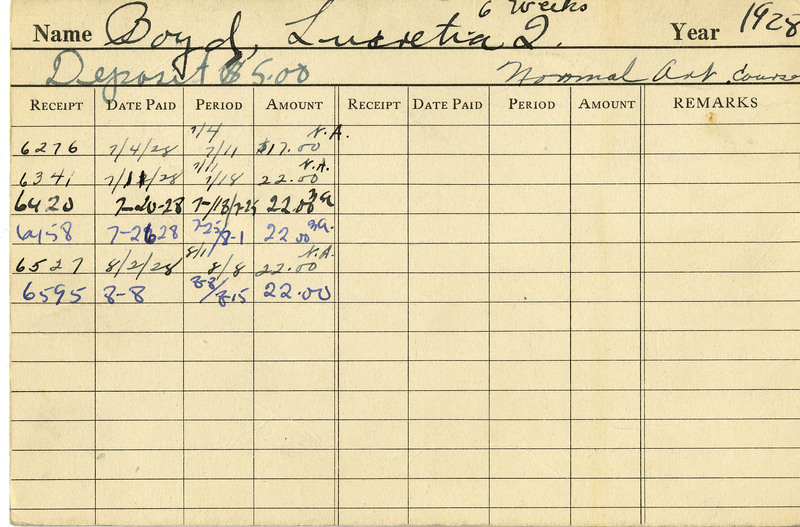 6 Weeks
Name Boyd, Lucretia Q. Year 1928
Deposit $5.00 Normal Art Course
RECEIPT DATE PAID PERIOD AMOUNT RECEIPT DATE PAID PERIOD AMOUNT REMARKS
7/4 N.A.
6276 7/4/28 7/11 $17.00
7/11 N.A.
6341 7/11/28 7/18 22.00
6420 7-20-28 7-18/7-25 22.00
6458 7-26 28 7-25/8-1 22.00
8/1 N.A.
6527 8/2/28 8/8 22.00
6595 8-8 8-8/8-15 22.00